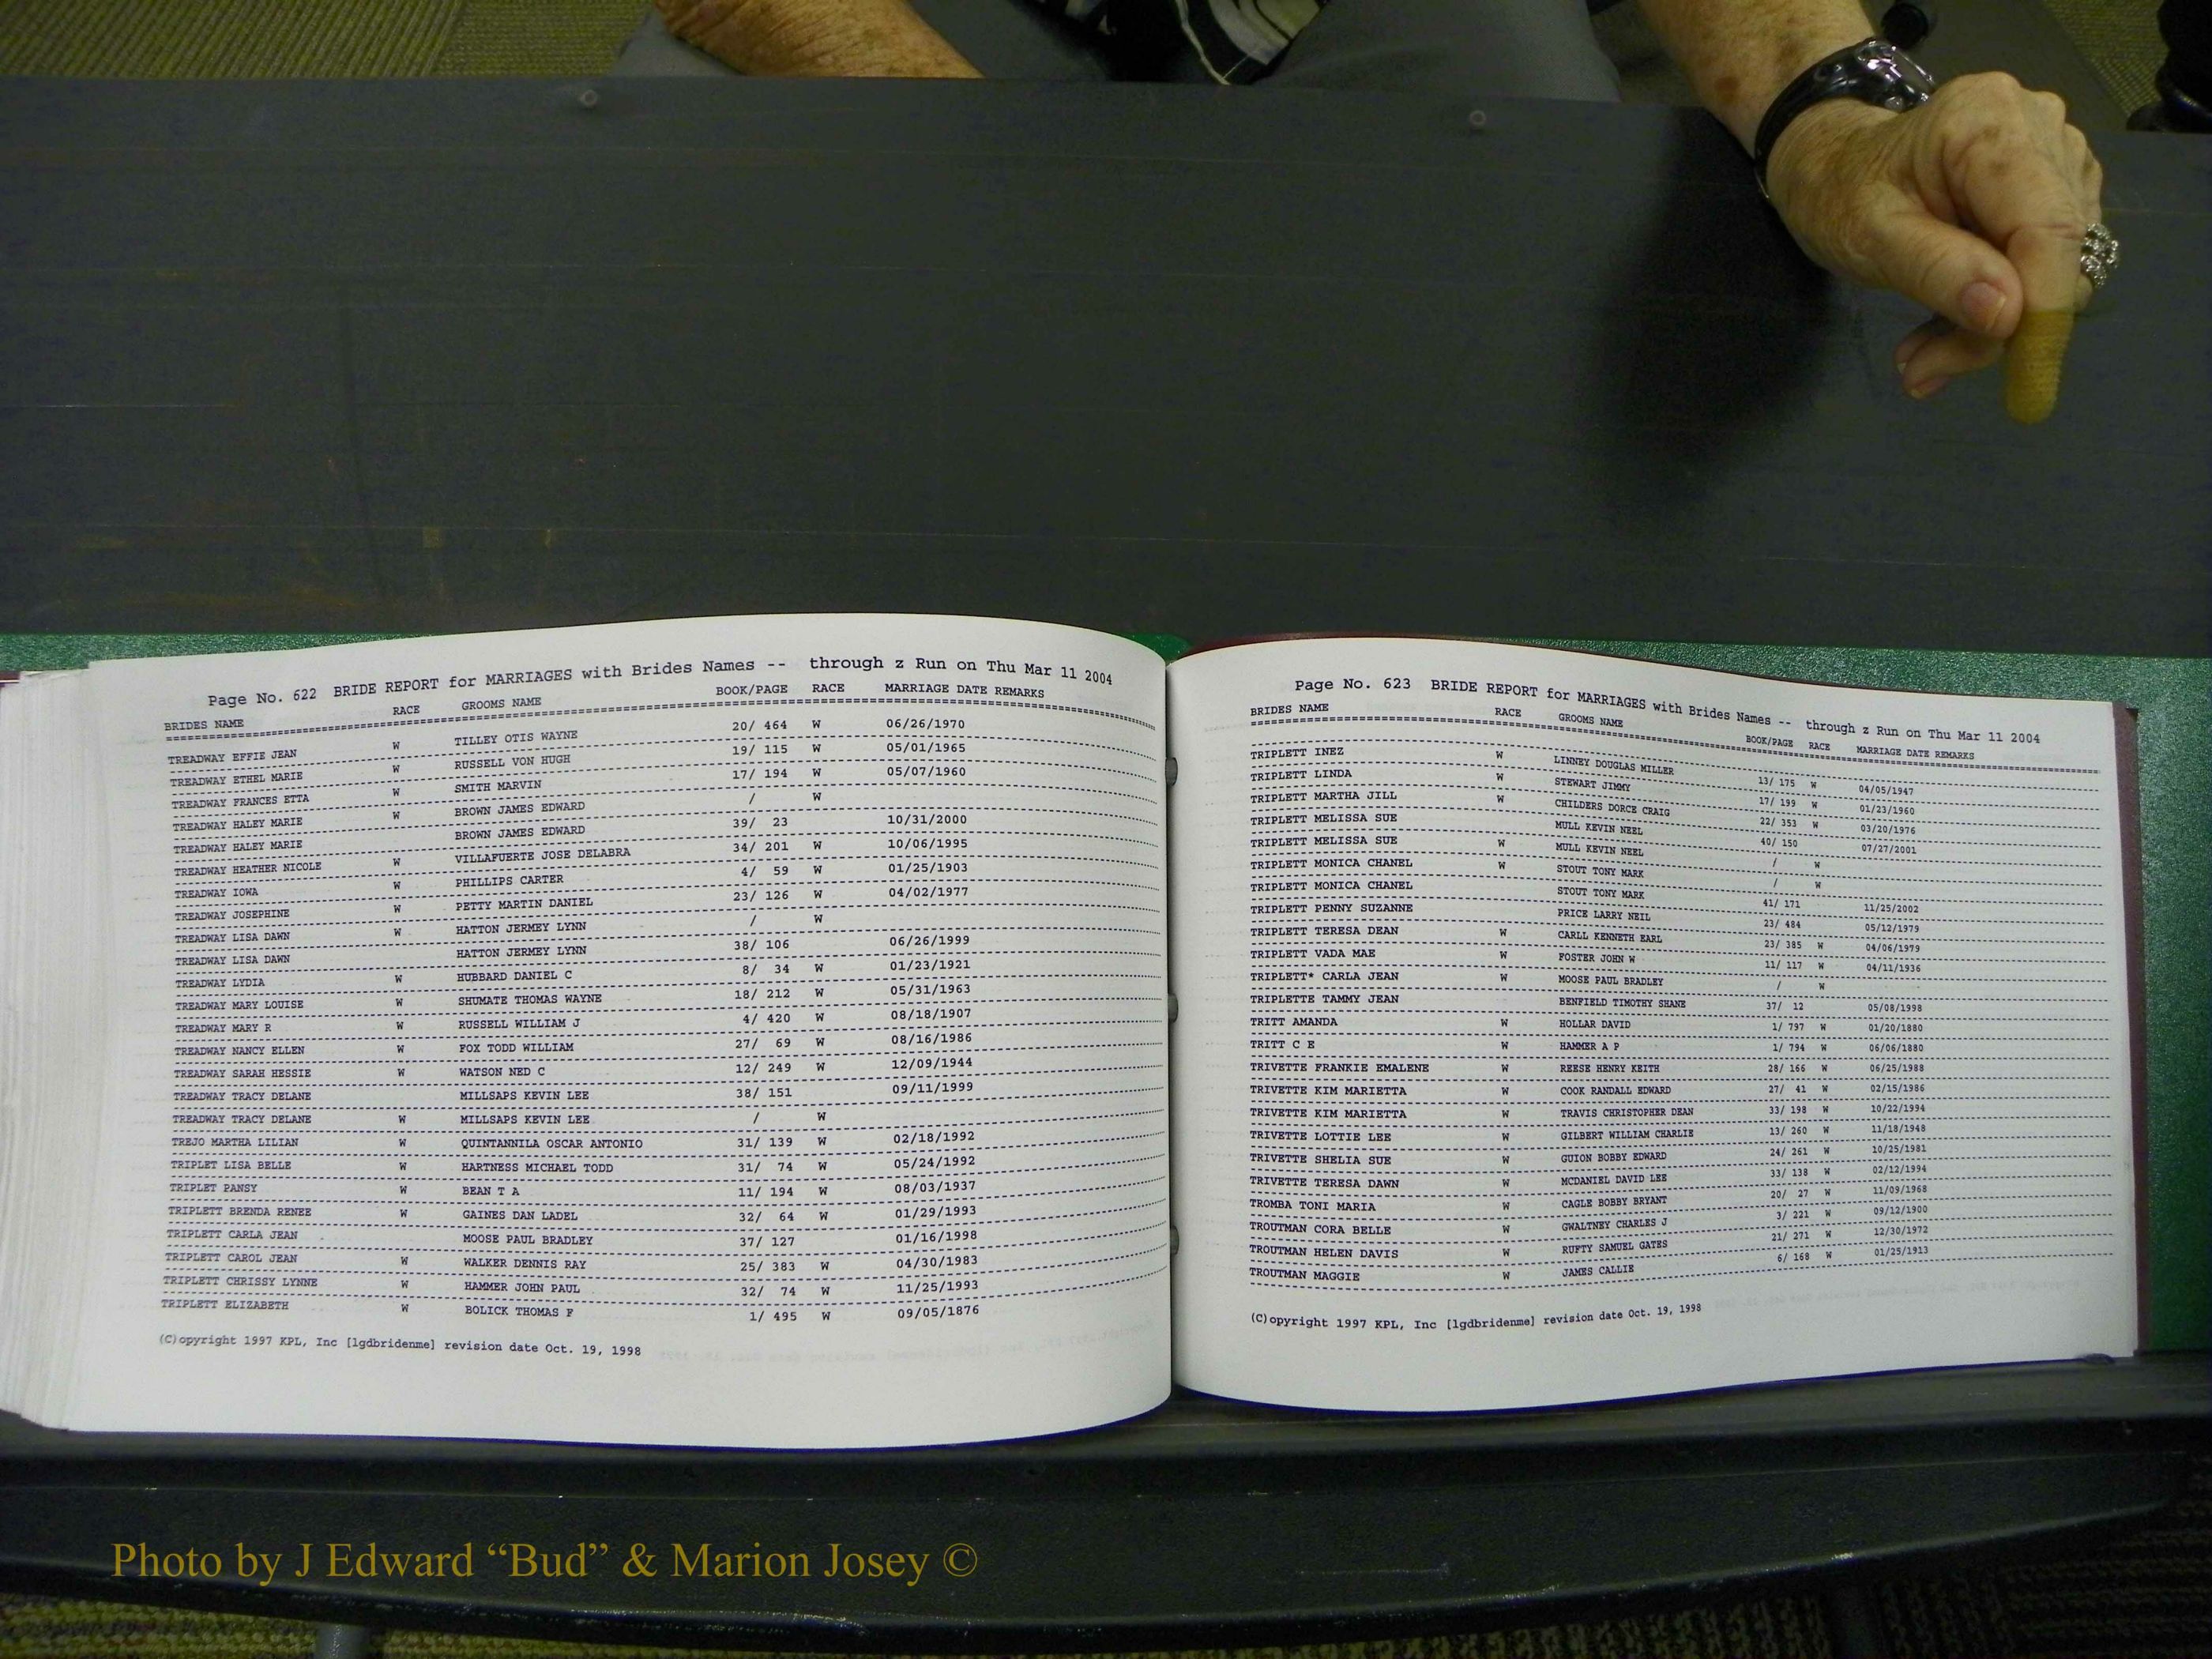 Page No. 622 BRIDE REPORT for MARRIAGES with Brides Names -- through z Run on Thu Mar 11 2004
BRIDES NAME RACE GROOMS NAME BOOK/PAGE RACE MARRIAGE DATE REMARKS
TREADWAY EFFIE JEAN W TILLEY OTIS WAYNE 20/ 464 W 06/26/1970
TREADWAY ETHEL MARIE W RUSSELL VON HUGH 19/ 115 W 05/01/1965
TREADWAY FRANCES ETTA W SMITH MARVIN 17/ 194 W 05/07/1960
TREADWAY HALEY MARIE W BROWN JAMES EDWARD / W
TREADWAY HALEY MARIE BROWN JAMES EDWARD 39/ 23 10/31/2000
TREADWAY HEATHER NICOLE W VILLAFUERTE JOSE DELABRA 34/ 201 W 10/06/1995
TREADWAY IOWA W PHILLIPS CARTER 4/ 59 W 01/25/1903
TREADWAY JOSEPHINE W PETTY MARTIN DANIEL 23/ 126 W 04/02/1977
TREADWAY LISA DAWN W HATTON JERMEY LYNN / W
TREADWAY LISA DAWN HATTON JERMEY LYNN 38/ 106 06/26/1999
TREADWAY LYDIA W HUBBARD DANIEL C 8/ 34 W 01/23/1921
TREADWAY MARY LOUISE W SHUMATE THOMAS WAYNE 18/ 212 W 05/31/1963
TREADWAY MARY R W RUSSELL WILLIAM J 4/ 420 W 08/18/1907
TREADWAY NANCY ELLEN W FOX TODD WILLIAM 27/ 69 W 08/16/1986
TREADWAY SARAH HESSIE W WATSON NED C 12/ 249 W 12/09/1944
TREADWAY TRACY DELANE MILLSAPS KEVIN LEE 38/ 151 09/11/1999
TREADWAY TRACY DELANE W MILLSAPS KEVIN LEE / W
TREJO MARTHA LILIAN W QUINTANNILA OSCAR ANTONIO 31/ 139 W 02/18/1992
TRIPLET LISA BELLE W HARTNESS MICHAEL TODD 31/ 74 W 05/24/1992
TRIPLET PANSY W BEAN T A 11/ 194 W 08/03/1937
TRIPLETT BRENDA RENEE W GAINES DAN LADEL 32/ 64 W 01/29/1993
TRIPLETT CARLA JEAN MOOSE PAUL BRADLEY 37/ 127 01/16/1998
TRIPLETT CAROL JEAN W WALKER DENNIS RAY 25/ 383 W 04/30/1983
TRIPLETT CHRISSY LYNNE W HAMMER JOHN PAUL 32/ 74 W 11/25/1993
TRIPLETT ELIZABETH W BOLICK THOMAS F 1/ 495 W 09/05/1876
(C)opyright 1997 KPL, Inc [lgdbridenme] revision date Oct. 19, 1998
Page No. 623 BRIDE REPORT for MARRIAGES with Brides Names -- through z Run on Thu Mar 11 2004
BRIDES NAME RACE GROOMS NAME BOOK/PAGE RACE MARRIAGE DATE REMARKS
TRIPLETT INEZ W LINNEY DOUGLAS MILLER 13/ 175 W 04/05/1947
TRIPLETT LINDA W STEWART JIMMY 17/ 199 W 01/23/1960
TRIPLETT MARTHA JILL W CHILDERS DORCE CRAIG 22/ 353 W 03/20/1976
TRIPLETT MELISSA SUE MULL KEVIN NEEL 40/ 150 07/27/2001
TRIPLETT MELISSA SUE W MULL KEVIN NEEL / W
TRIPLETT MONICA CHANEL W STOUT TONY MARK / W
TRIPLETT MONICA CHANEL STOUT TONY MARK 41/ 171 11/25/2002
TRIPLETT PENNY SUZANNE PRICE LARRY NEIL 23/ 484 05/12/1979
TRIPLETT TERESA DEAN W CARLL KENNETH EARL 23/ 385 W 04/06/1979
TRIPLETT VADA MAE W FOSTER JOHN W 11/ 117 W 04/11/1936
TRIPLETT* CARLA JEAN W MOOSE PAUL BRADLEY / W
TRIPLETTE TAMMY JEAN BENFIELD TIMOTHY SHANE 37/ 12 05/08/1998
TRITT AMANDA W HOLLAR DAVID 1/ 797 W 01/20/1880
TRITT C E W HAMMER A P 1/ 794 W 06/06/1880
TRIVETTE FRANKIE EMALENE W REESE HENRY KEITH 28/ 166 W 06/25/1988
TRIVETTE KIM MARIETTA W COOK RANDALL EDWARD 27/ 41 W 02/15/1986
TRIVETTE KIM MARIETTA W TRAVIS CHRISTOPHER DEAN 33/ 198 W 10/22/1994
TRIVETTE LOTTIE LEE W GILBERT WILLIAM CHARLIE 13/ 260 W 11/18/1948
TRIVETTE SHELIA SUE W GUION BOBBY EDWARD 24/ 261 W 10/25/1981
TRIVETTE TERESA DAWN W MCDANIEL DAVID LEE 33/ 138 W 02/12/1994
TROMBA TONI MARIA W CAGLE BOBBY BRYANT 20/ 27 W 11/09/1968
TROUTMAN CORA BELLE W GWALTNEY CHARLES J 3/ 221 W 09/12/1900
TROUTMAN HELEN DAVIS W RUFTY SAMUEL GATES 21/ 271 W 12/30/1972
TROUTMAN MAGGIE W JAMES CALLIE 6/ 168 W 01/25/1913
(C)opyright 1997 KPL, Inc [lgdbridenme] revision date Oct. 19, 1998
Photo by J Edward “Bud” & Marion Josey ©